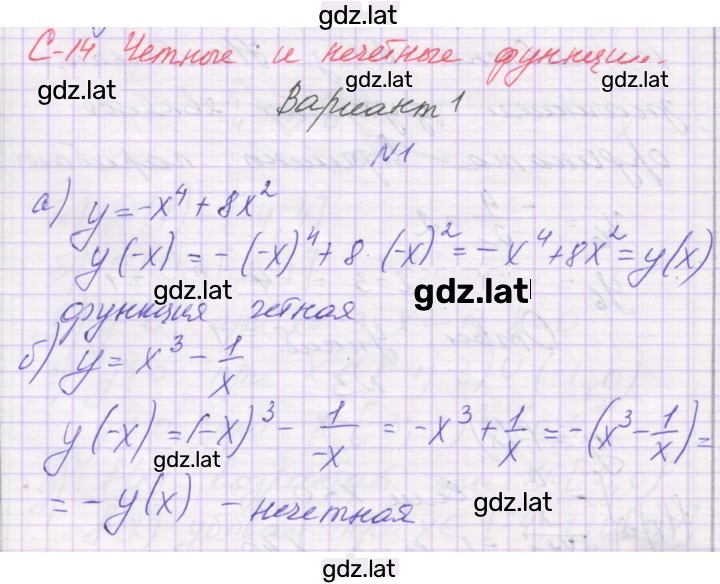 gdz.lat
С-14. Четные и нечётные функции.
gdz.lat gdz.lat
Вариант 1
gdz.lat
N1
а) y = -x⁴ + 8x²
y(-x) = -(-x)⁴ + 8 (-x)² = -x⁴ + 8x² = y(x)
gdz.lat gdz.lat
функция четная
б) y = x³ - 1/x
y(-x) = (-x)³ - 1/-x = -x³ + 1/x = -(x³ - 1/x) =
gdz.lat
= -y(x) - нечетная
gdz.lat
gdz.lat